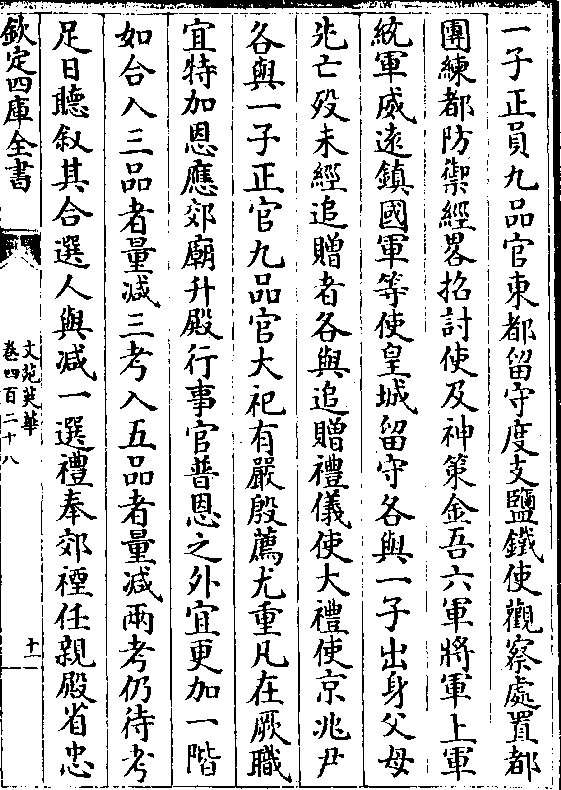 一子正員九品官東都留守度支鹽鐵使觀察處置都
團練都防禦經畧招討使及神策金吾六軍將軍上軍
統軍威遠鎮國軍等使皇城留守各與一子出身父母
先亡殁未經追贈者各與追贈禮儀使大禮使京兆尹
各與一子正官九品官大祀有嚴殷薦尤重凡在厥職
宜特加恩應郊廟升殿行事官普恩之外宜更加一階
如合入三品者量减三考入五品者量减兩考仍待考
足日聽叙其合選人與减一選禮奉郊禋任親殿省忠
欽定四庫全書
文苑英華
卷四百二十八
十一